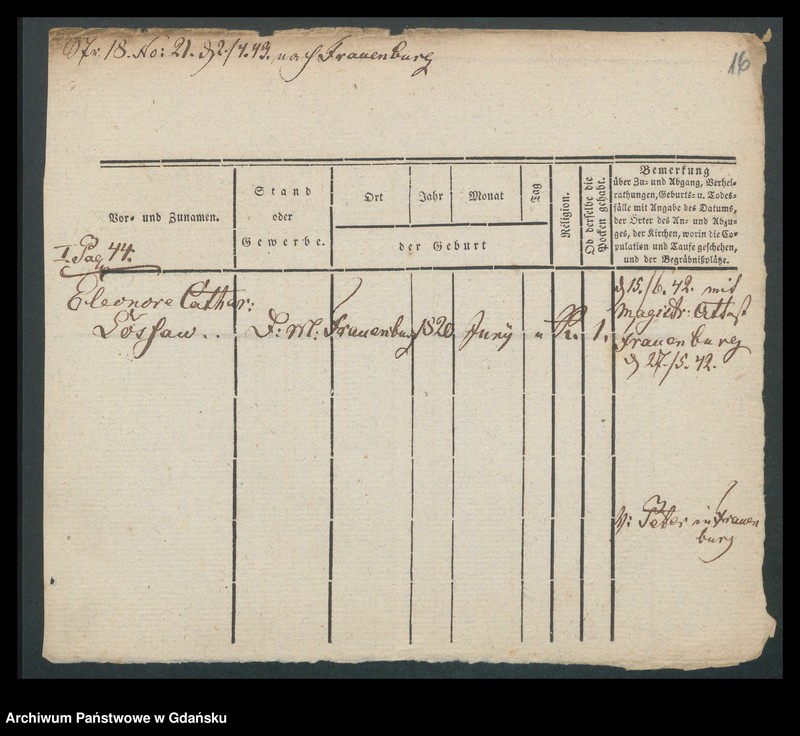 18. No: 21. d 2./4. 43. nach Frauenburg
16
Vor- und Zunamen.
Stand
oder
Gewerbe.
Ort
Jahr
Monat
Tag
der Geburt
Religion.
Ob derselbe die
Pocken gehabt.
Bemerkung
über Zu- und Abgang, Verhei-
rathungen, Geburts- u. Todes-
fälle mit Angabe des Datums,
der Örter des An- und Abzu-
ges, der Kirchen, worin die Co-
pulation und Taufe geschehen,
und der Begräbnißplätze.
I. Pag 44.
Eleonore Cathar:
Lössaw . . D: M: Frauenburg 1820. Juny 1.
d 15./6. 42. mit
Magistr: Attest
Frauenburg
d 27./5. 42.
V: Peter in Frauen
burg
Archiwum Państwowe w Gdańsku